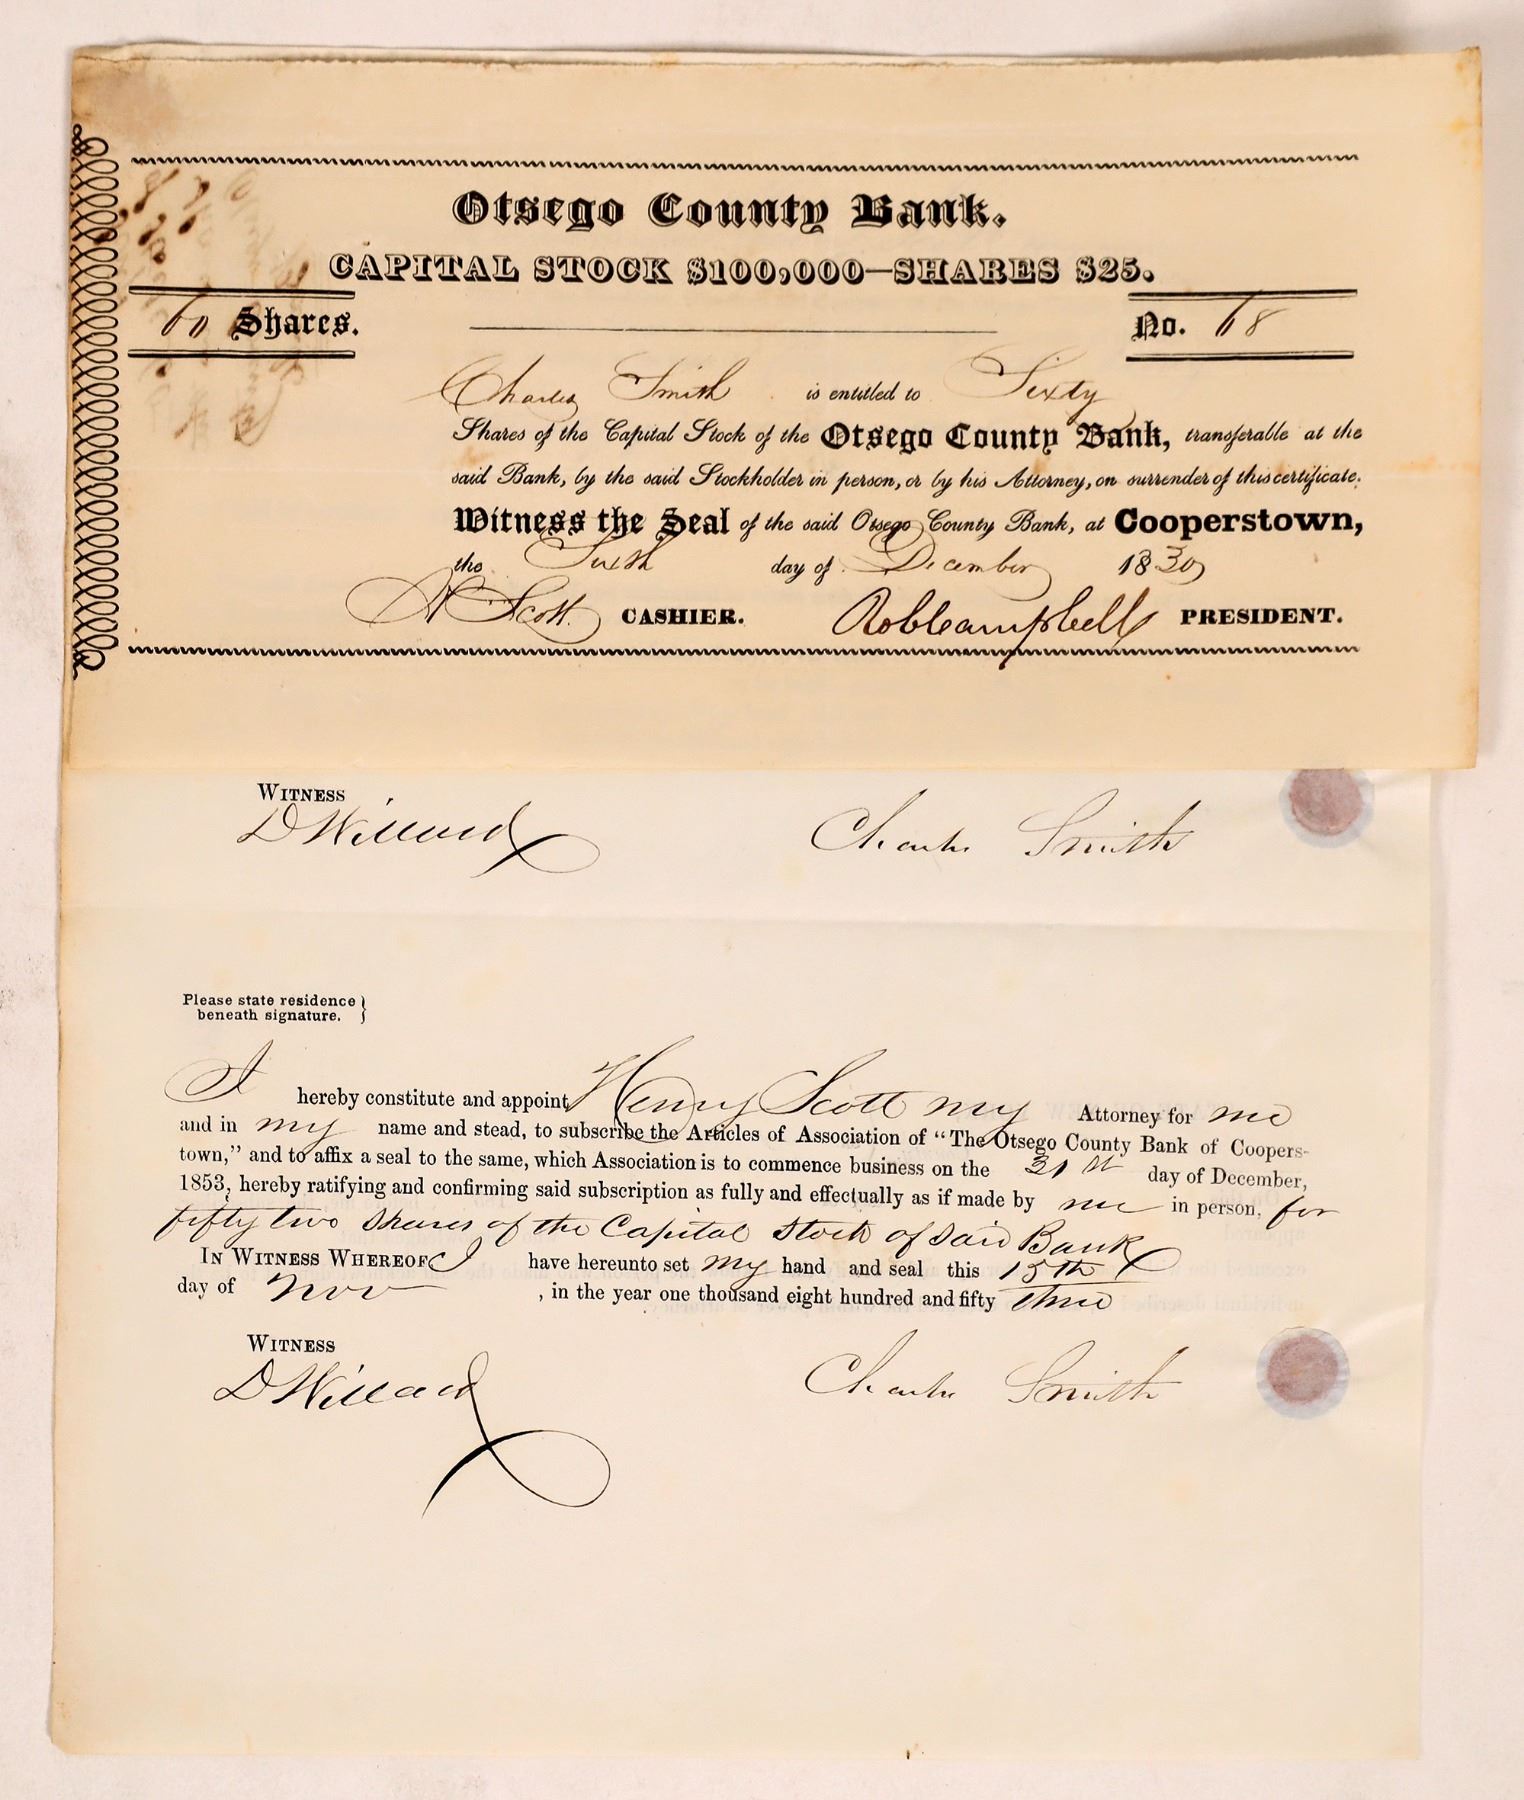 Otsego County Bank.
CAPITAL STOCK $100,000—SHARES $25.
60 Shares.
No. 68
Charles Smith is entitled to Sixty
Shares of the Capital Stock of the Otsego County Bank, transferable at the
said Bank, by the said Stockholder in person, or by his Attorney, on surrender of this certificate.
Witness the Seal of the said Otsego County Bank, at Cooperstown,
the Sixth day of December 1830
H Scott CASHIER. Rob Campbell PRESIDENT.
WITNESS
D Willard Charles Smith
Please state residence
beneath signature. }
I hereby constitute and appoint Henry Scott my Attorney for me
and in my name and stead, to subscribe the Articles of Association of "The Otsego County Bank of Coopers-
town," and to affix a seal to the same, which Association is to commence business on the 31st day of December,
1853, hereby ratifying and confirming said subscription as fully and effectually as if made by me in person, for
fifty two shares of the Capital Stock of said Bank
IN WITNESS WHEREOF I have hereunto set my hand and seal this 15th
day of Nov , in the year one thousand eight hundred and fifty three
WITNESS
D Willard Charles Smith